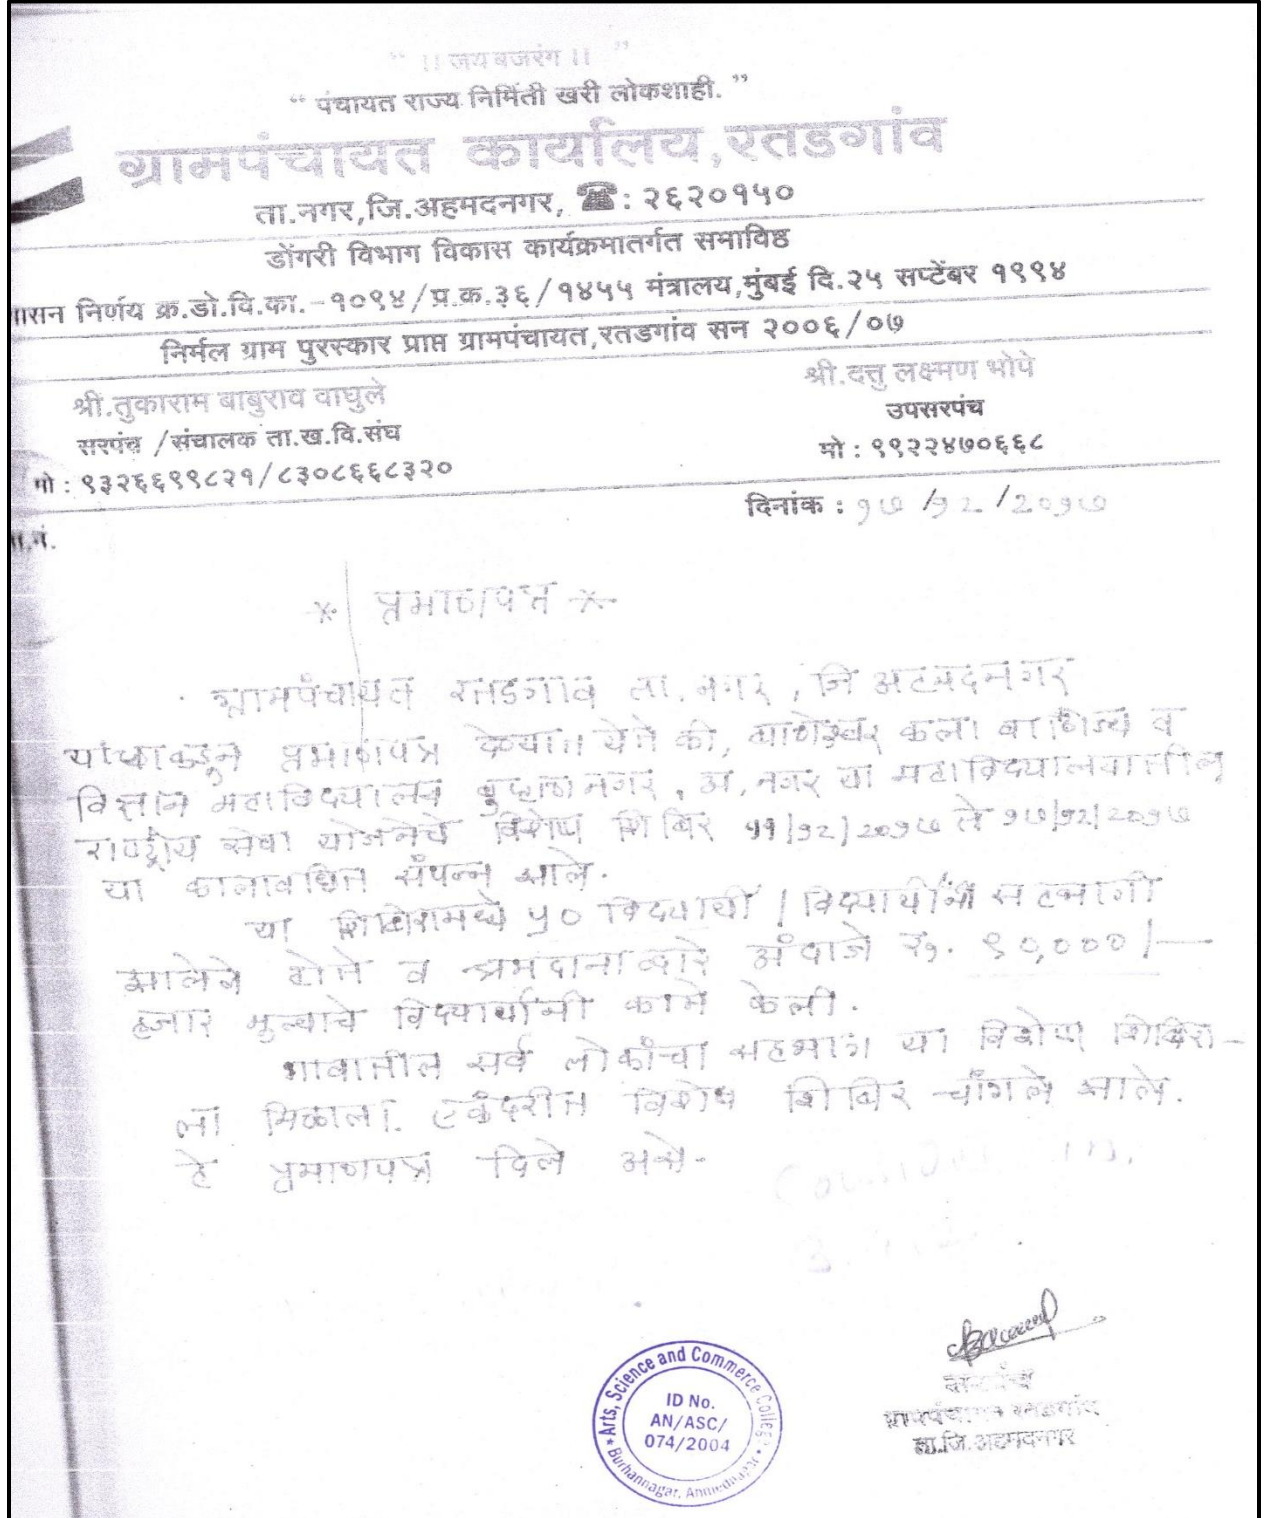 " ।। जय बजरंग ।। "
" पंचायत राज्य निर्मिती खरी लोकशाही. "
ग्रामपंचायत कार्यालय,रतडगांव
ता.नगर,जि.अहमदनगर, ☎: २६२०१५०
डोंगरी विभाग विकास कार्यक्रमातर्गत समाविष्ठ
ासन निर्णय क्र.डो.वि.का.-१०९४/प्र.क.३६/१४५५ मंत्रालय,मुंबई दि.२५ सप्टेंबर १९९४
निर्मल ग्राम पुरस्कार प्राप्त ग्रामपंचायत,रतडगांव सन २००६/०७
श्री.तुकाराम बाबुराव वाघुले
सरपंच /संचालक ता.ख.वि.संघ
मो : ९३२६६९९८२१/८३०८६६८३२०
श्री.दत्तु लक्ष्मण भोपे
उपसरपंच
मो : ९९२२४७०६६८
दिनांक : १७/१२/२०१७
ा.नं.
* प्रमाणपत्र *
ग्रामपंचायत रतडगाव ता. नगर, जि अहमदनगर
यांच्याकडून प्रमाणपत्र देण्यात येते की, बाणेश्वर कला वाणिज्य व
विज्ञान महाविद्यालय बुऱ्हाणनगर, अ.नगर या महाविद्यालयातील
राष्ट्रीय सेवा योजनेचे विशेष शिबिर ११/१२/२०१७ ते १७/१२/२०१७
या कालावधित संपन्न झाले.
या शिबिरामध्ये ५० विद्यार्थी / विद्यार्थीनी सहभागी
झालेले होते व श्रमदानाव्दारे अंदाजे रु. ९०,०००/-
हजार मुल्याचे विद्यार्थ्यांनी कामे केली.
गावातील सर्व लोकांचा सहभाग या विशेष शिबिरा-
ला मिळाला. एकंदरीत विशेष शिबिर चांगले झाले.
हे प्रमाणपत्र दिले असे-
Arts, Science and Commerce College
ID No.
AN/ASC/
074/2004
Burhannagar, Ahmednagar
सरपंच
ग्रामपंचायत रतडगांव
ता.जि.अहमदनगर